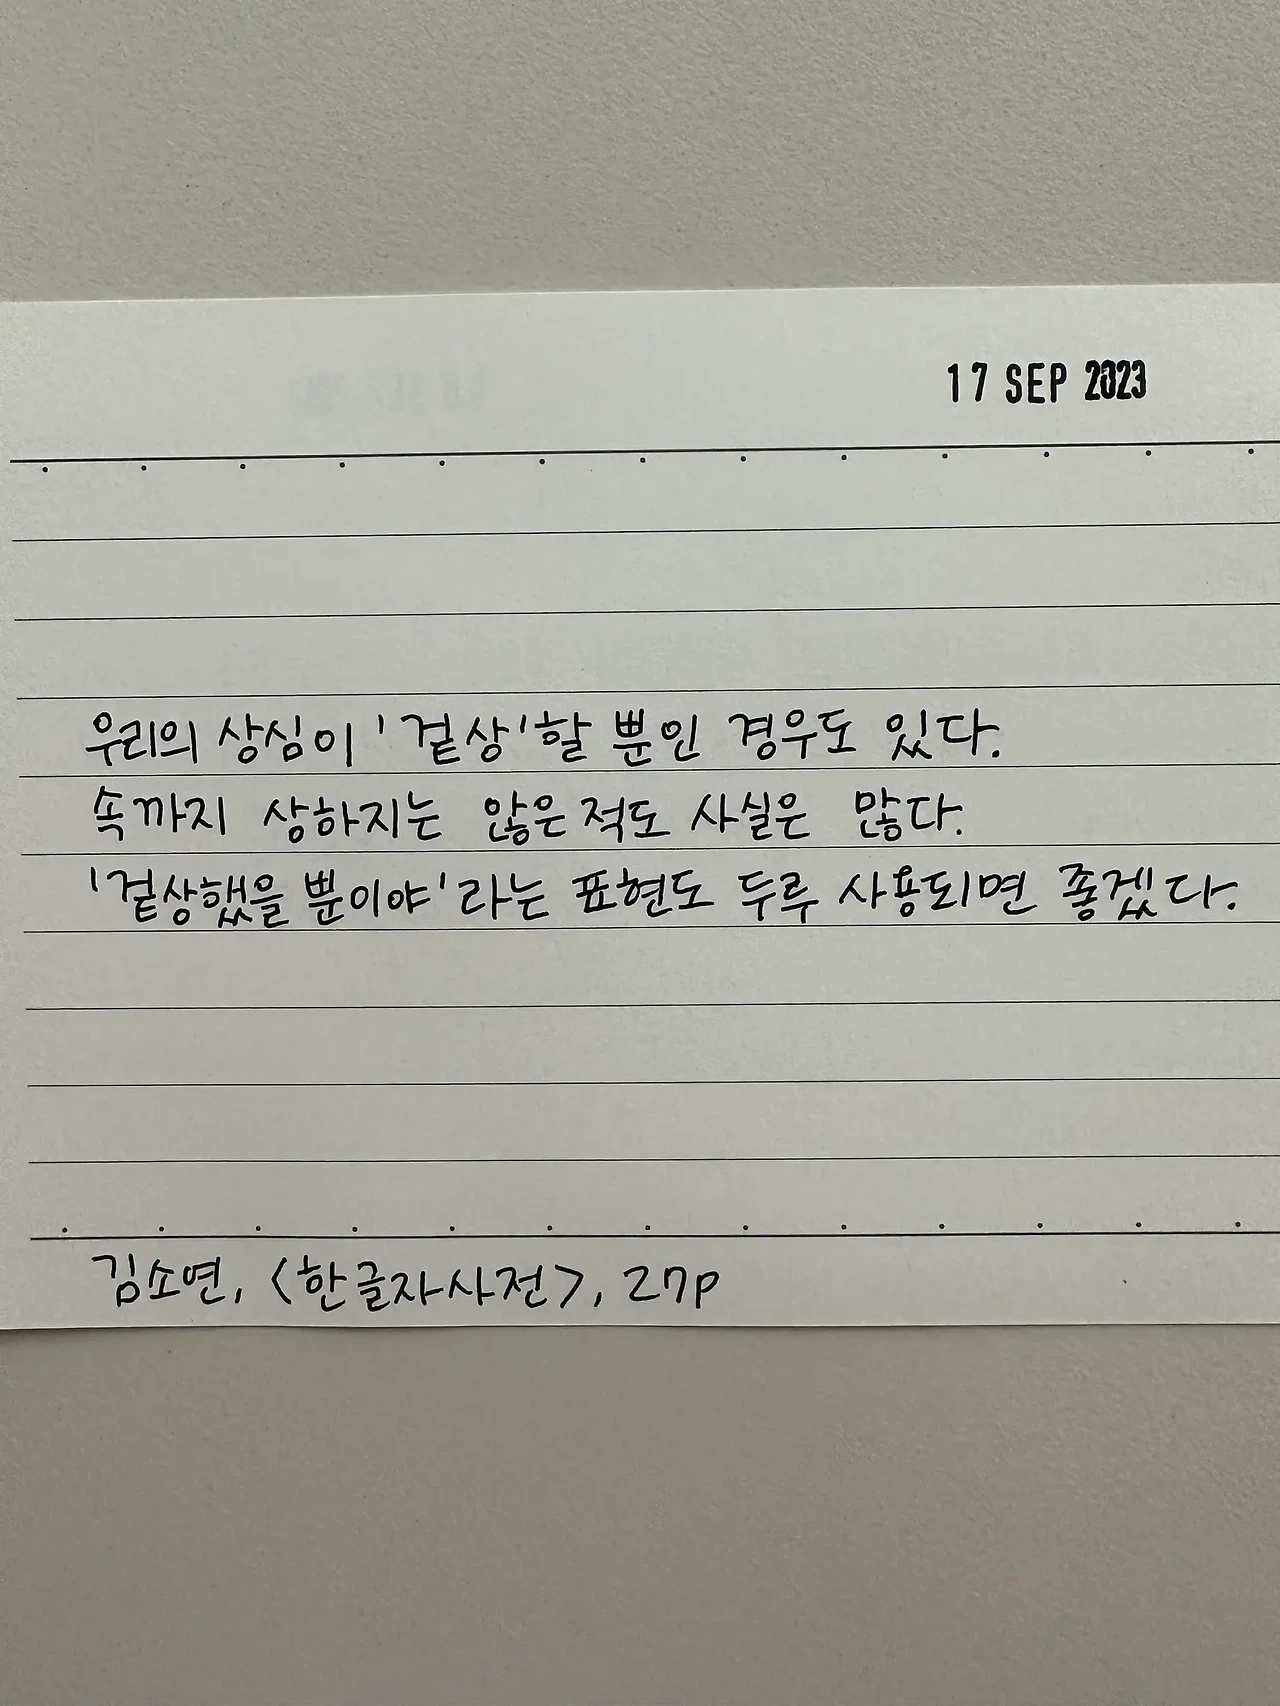 17 SEP 2023
우리의 상심이 '겉상'할 뿐인 경우도 있다.
속까지 상하지는 않은 적도 사실은 많다.
'겉상했을 뿐이야'라는 표현도 두루 사용되면 좋겠다.
김소연, <한글자사전>, 27p